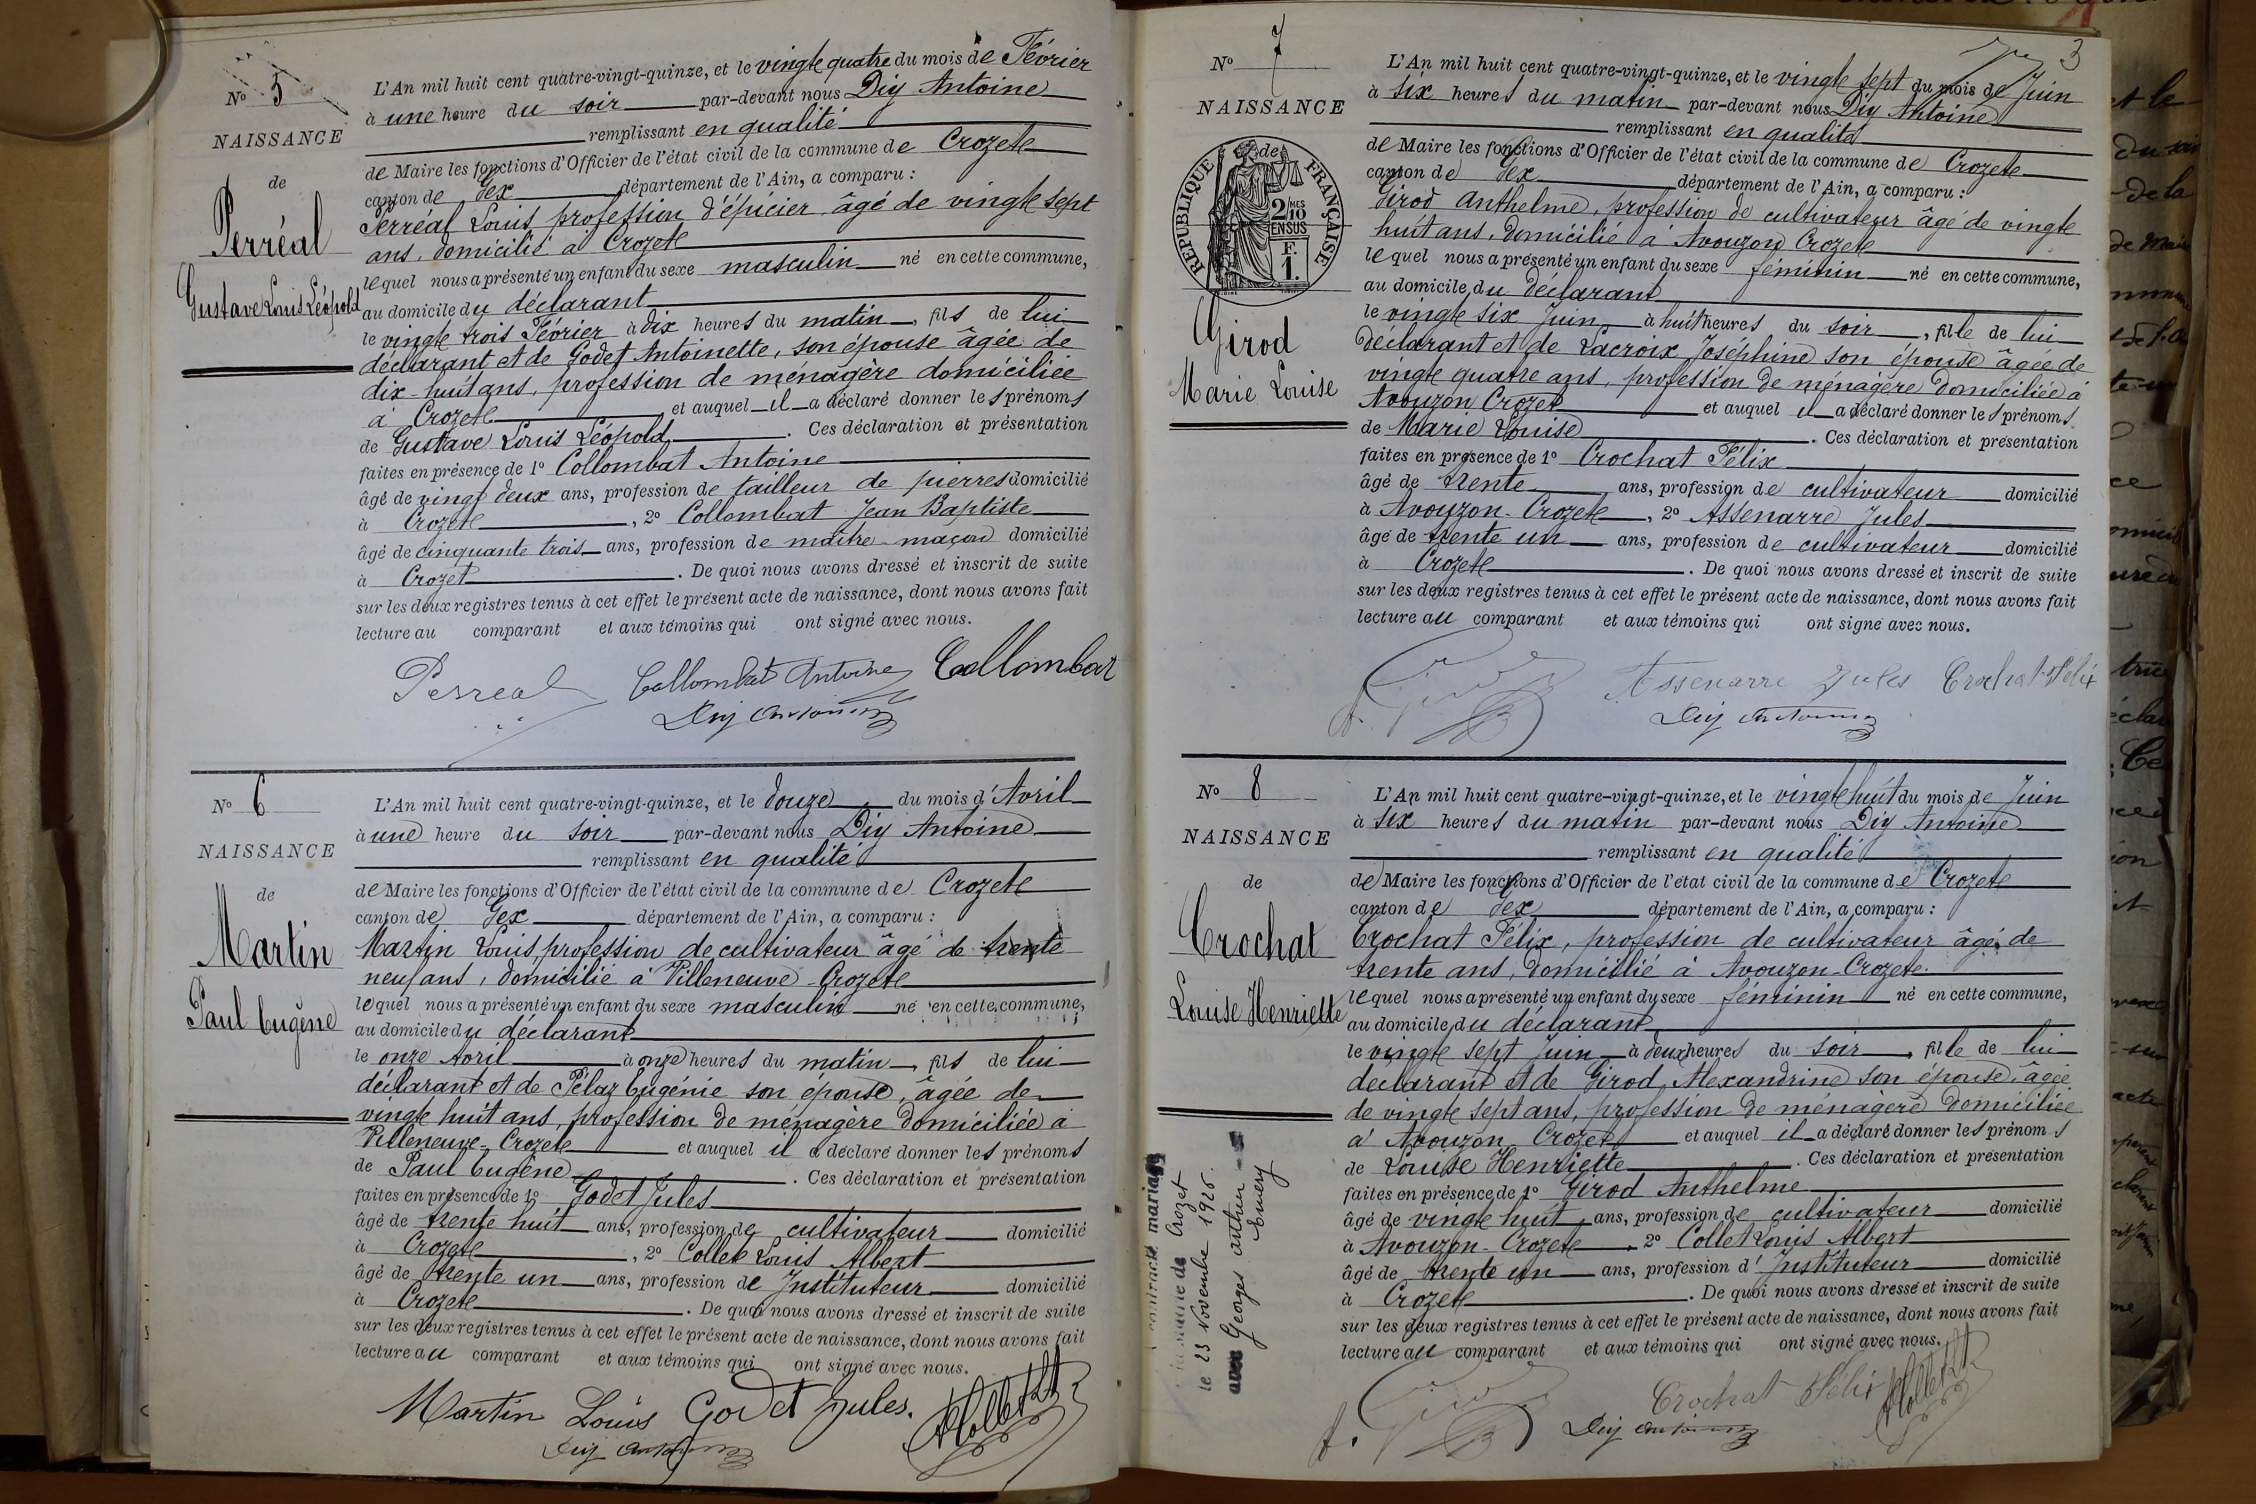 N° 5
NAISSANCE
de
Perréal
Gustave Louis Léopold
L'An mil huit cent quatre-vingt-quinze, et le vingt quatre du mois de Février
à une heure du soir par-devant nous Diy Antoine
remplissant en qualité
de Maire les fonctions d'Officier de l'état civil de la commune de Crozet
canton de Gex département de l'Ain, a comparu :
Perréal Louis, profession d'épicier âgé de vingt sept
ans, domicilié à Crozet
lequel nous a présenté un enfant du sexe masculin né en cette commune,
au domicile du déclarant
le vingt trois Février à dix heures du matin, fils de lui
déclarant et de Godet Antoinette, son épouse âgée de
dix-huit ans, profession de ménagère domiciliée
à Crozet et auquel il a déclaré donner les prénoms
de Gustave Louis Léopold. Ces déclaration et présentation
faites en présence de 1° Collombat Antoine
âgé de vingt deux ans, profession de tailleur de pierres domicilié
à Crozet, 2° Collombat Jean Baptiste
âgé de cinquante trois ans, profession de maître-maçon domicilié
à Crozet. De quoi nous avons dressé et inscrit de suite
sur les deux registres tenus à cet effet le présent acte de naissance, dont nous avons fait
lecture au comparant et aux témoins qui ont signé avec nous.
Perreal Collombat Antoine Collombat
Diy Antoine
N° 6
NAISSANCE
de
Martin
Paul Eugène
L'An mil huit cent quatre-vingt-quinze, et le douze du mois d'Avril
à une heure du soir par-devant nous Diy Antoine
remplissant en qualité
de Maire les fonctions d'Officier de l'état civil de la commune de Crozet
canton de Gex département de l'Ain, a comparu :
Martin Louis, profession de cultivateur âgé de trente
neuf ans, domicilié à Villeneuve-Crozet
lequel nous a présenté un enfant du sexe masculin né en cette commune,
au domicile du déclarant
le onze Avril à onze heures du matin, fils de lui
déclarant et de Pélaz Eugénie son épouse, âgée de
vingt huit ans, profession de ménagère domiciliée à
Villeneuve-Crozet et auquel il a déclaré donner les prénoms
de Paul Eugène. Ces déclaration et présentation
faites en présence de 1° Godet Jules
âgé de trente huit ans, profession de cultivateur domicilié
à Crozet, 2° Collet Louis Albert
âgé de trente un ans, profession de Instituteur domicilié
à Crozet. De quoi nous avons dressé et inscrit de suite
sur les deux registres tenus à cet effet le présent acte de naissance, dont nous avons fait
lecture au comparant et aux témoins qui ont signé avec nous.
Martin Louis Godet Jules.
Diy Antoine
3
N° 7
NAISSANCE
de
RÉPUBLIQUE FRANÇAISE
2/10 MES
EN SUS
F.
1.
Girod
Marie Louise
L'An mil huit cent quatre-vingt-quinze, et le vingt sept du mois de Juin
à six heures du matin par-devant nous Diy Antoine
remplissant en qualité
de Maire les fonctions d'Officier de l'état civil de la commune de Crozet
canton de Gex département de l'Ain, a comparu :
Girod Anthelme, profession de cultivateur âgé de vingt
huit ans, domicilié à Avouzon Crozet
lequel nous a présenté un enfant du sexe féminin né en cette commune,
au domicile du déclarant
le vingt six Juin à huit heures du soir, fille de lui
déclarant et de Lacroix Joséphine son épouse âgée de
vingt quatre ans, profession de ménagère domiciliée à
Avouzon Crozet et auquel il a déclaré donner les prénoms
de Marie Louise. Ces déclaration et présentation
faites en présence de 1° Crochat Félix
âgé de trente ans, profession de cultivateur domicilié
à Avouzon-Crozet, 2° Assenarre Jules
âgé de trente un ans, profession de cultivateur domicilié
à Crozet. De quoi nous avons dressé et inscrit de suite
sur les deux registres tenus à cet effet le présent acte de naissance, dont nous avons fait
lecture au comparant et aux témoins qui ont signé avec nous.
Assenarre Jules Crochat Félix
Diy Antoine
N° 8
NAISSANCE
de
Crochat
Louise Henriette
contracté mariage
à la mairie de Crozet
le 23 Novembre 1926.
avec Georges arthur
Emery
L'An mil huit cent quatre-vingt-quinze, et le vingt huit du mois de Juin
à six heures du matin par-devant nous Diy Antoine
remplissant en qualité
de Maire les fonctions d'Officier de l'état civil de la commune de Crozet
canton de Gex département de l'Ain, a comparu :
Crochat Félix, profession de cultivateur âgé de
trente ans, domicilié à Avouzon-Crozet
lequel nous a présenté un enfant du sexe féminin né en cette commune,
au domicile du déclarant
le vingt sept Juin à deux heures du soir, fille de lui
déclarant et de Girod Alexandrine son épouse, âgée
de vingt sept ans, profession de ménagère domiciliée
à Avouzon Crozet et auquel il a déclaré donner les prénoms
de Louise Henriette. Ces déclaration et présentation
faites en présence de 1° Girod Anthelme
âgé de vingt huit ans, profession de cultivateur domicilié
à Avouzon-Crozet, 2° Collet Louis Albert
âgé de trente un ans, profession d'Instituteur domicilié
à Crozet. De quoi nous avons dressé et inscrit de suite
sur les deux registres tenus à cet effet le présent acte de naissance, dont nous avons fait
lecture au comparant et aux témoins qui ont signé avec nous.
Crochat Félix
Diy Antoine